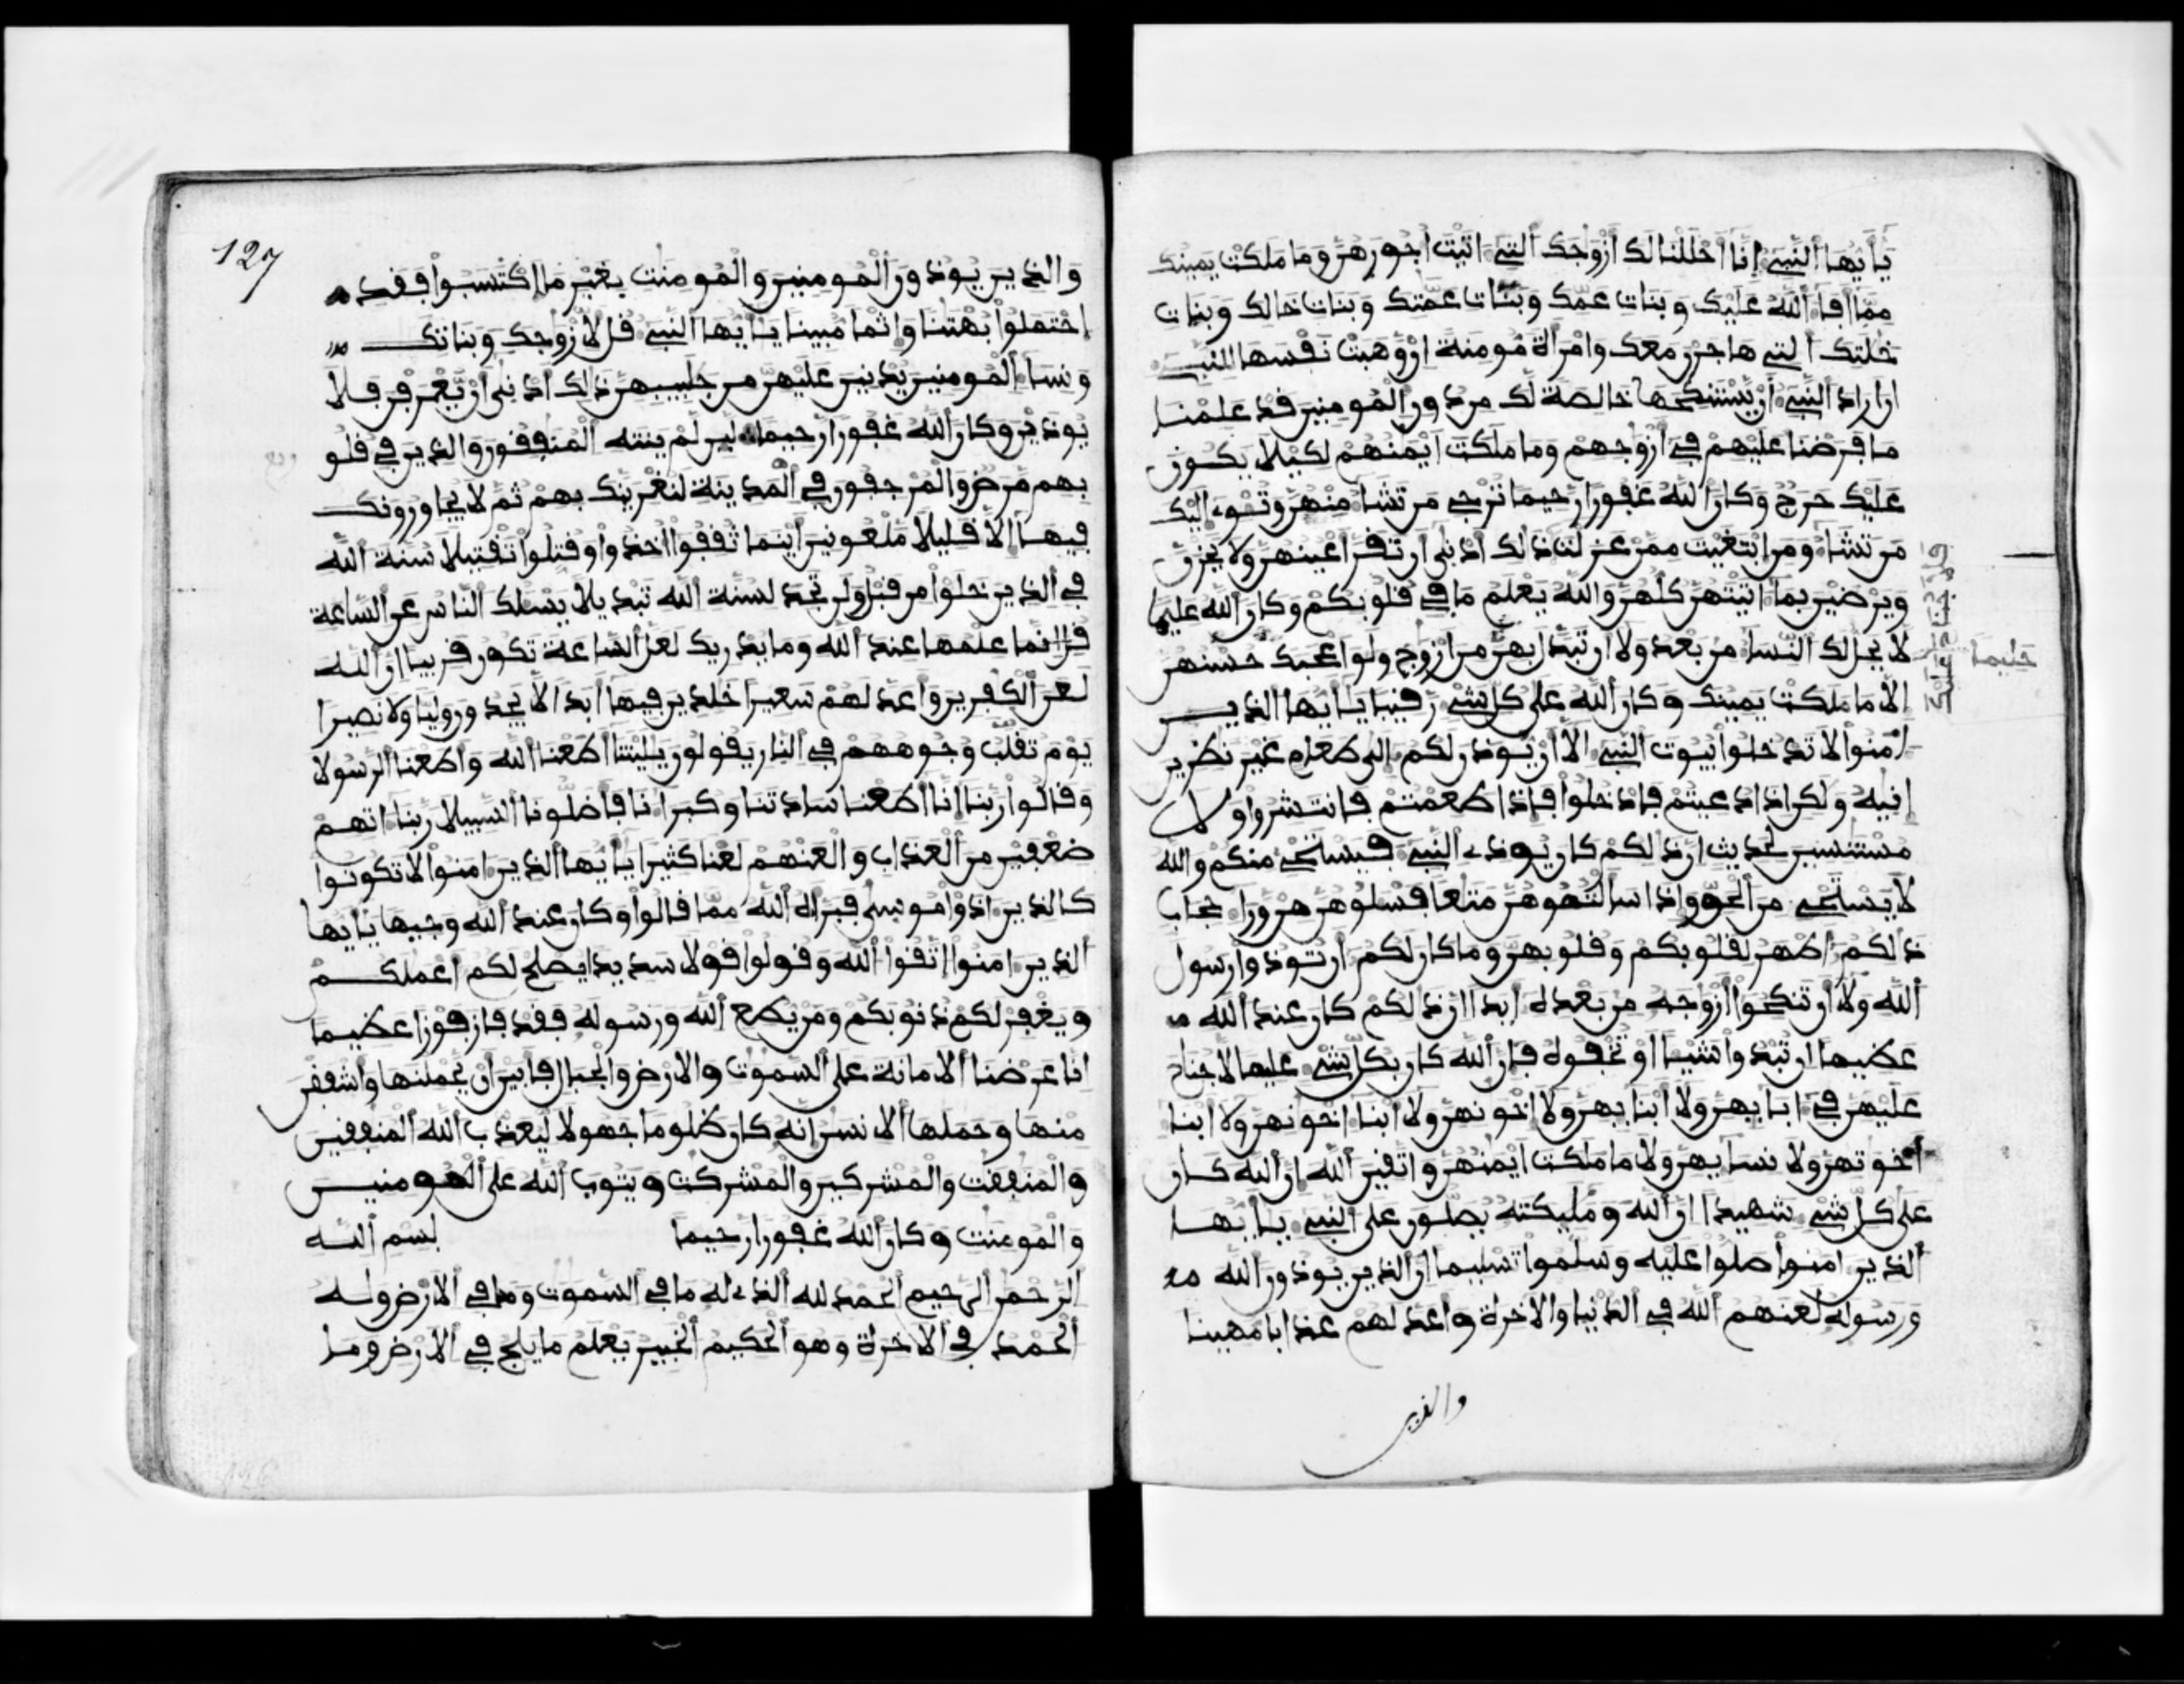 يأيها النبي إنا أحللنا لك أزوجك التي اتيت أجورهن وما ملكت يمينك
مما أفا الله عليك وبنات عمك وبنات عمتك وبنات خالك وبنات
خلتك التي هاجرن معك وامرأة مومنة ان وهبت نفسها للنبي
ان اراد النبي أن يستنكحها خالصة لك من دون المومنين قد علمنا
ما فرضنا عليهم في أزوجهم وما ملكت أيمنهم لكيلا يكون
عليك حرج وكان الله غفورا رحيما ترجي من تشا منهن وتئوي اليك
من تشا ومن ابتغيت ممن عزلت
ذلك ادنى ان تقر اعينهن ولا يحزن
ويرضين بما اتيتهن كلهن والله يعلم ما في قلوبكم وكان الله عليما
حليما
فلا جناح عليك
لا يحل لك النسا من بعد ولا أن تبدل بهن من ازوج ولو اعجبك حسنهن
الا ما ملكت يمينك وكان الله على كل شي رقيبا يايها الذين
امنوا لا تدخلوا بيوت النبي الا أن يوذن لكم إلى طعام غير نظرين
إنيه ولكن اذا دعيتم فادخلوا فإذا طعمتم فانتشروا ولا
مستنسين لحديث ان ذلكم كان يوذي النبي فيستحي منكم والله
لا يستحي من الحق وإذا سالتموهن متعا فسلوهن من ورا حجاب
ذلكم اطهر لقلوبكم وقلوبهن وما كان لكم أن توذوا رسول
الله ولا أن تنكحوا أزوجه من بعده أبدا ان ذلكم كان عند الله
عظيما ان تبدوا شيا او تخفوه فإن الله كان بكل شي عليما لا جناح
عليهن في ابابهن ولا أبنابهن ولا اخونهن ولا ابنا اخونهن ولا ابنا
أخوتهن ولا نسايهن ولا ما ملكت أيمنهن واتقين الله ان الله كان
على كل شي شهيدا ان الله ومليكته يصلون على النبي يايها
الذين امنوا صلوا عليه وسلموا تسليما ان الذين يوذون الله
ورسوله لعنهم الله في الدنيا والاخرة واعد لهم عذابا مهينا
والذين
127
والذين يوذون المومنين والمومنت بغير ما اكتسبوا فقد
احتملوا بهتنا وإثما مبينا يايها النبي قل لأزوجك وبناتك
ونسا المومنين يدنين عليهن من جلبيبهن ذلك ادنى أن يعرفن فلا
يوذين وكان الله غفورا رحيما لين لم ينته المنفقون والذين في قلو
بهم مرض والمرجفون في المدينة لنغرينك بهم ثم لا يجاورونك
فيها إلا قليلا ملعونين أينما ثقفوا اخذوا وقتلوا تقتيلا سنة الله
في الذين خلوا من قبل ولن تجد لسنة الله تبديلا يسلك الناس عن الساعة
قل إنما علمها عند الله وما يدريك لعل الساعة تكون قريبا ان الله
لعن الكفرين واعد لهم سعيرا خلدين فيها أبدا لا يجدون وليا ولا نصيرا
يوم تقلب وجوههم في النار يقولون يليتنا أطعنا الله واطعنا الرسولا
وقالوا ربنا إنا أطعنا سادتنا وكبرانا فأضلونا السبيلا ربنا اتهم
ضعفين من العذاب والعنهم لعنا كثيرا يايها الذين امنوا لا تكونوا
كالذين اذوا موسى فبراه الله مما قالوا وكان عند الله وجيها يايها
الذين امنوا اتقوا الله وقولوا قولا سديدا يصلح لكم اعملكم
ويغفر لكم ذنوبكم ومن يطع الله ورسوله فقد فاز فوزا عظيما
انا عرضنا الامانة على السموت والارض والجبال فأبين أن يحملنها واشفقن
منها وحملها الانسن إنه كان ظلوما جهولا ليعذب الله المنفقين
والمنفقت والمشركين والمشركت ويتوب الله على المومنين
والمومنت وكان الله غفورا رحيما بسم الله
الرحمن الرحيم الحمد لله الذي له ما في السموت وما في الارض وله
الحمد في الاخرة وهو الحكيم الخبير يعلم ما يلج في الارض وما